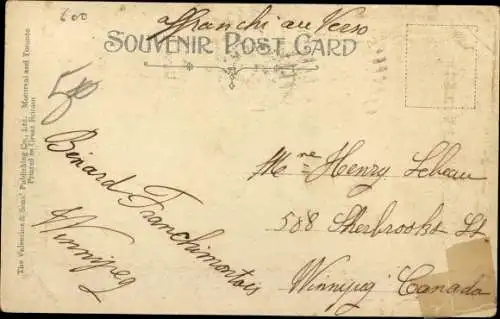 600
affranchi au verso
SOUVENIR POST CARD
The Valentine & Sons' Publishing Co., Ltd. Montreal and Toronto
Printed in Great Britain
Bénard Franchimontois
Winnipeg
Mme Henry Lebeau
588 Sherbrooks St
Winnipeg Canada